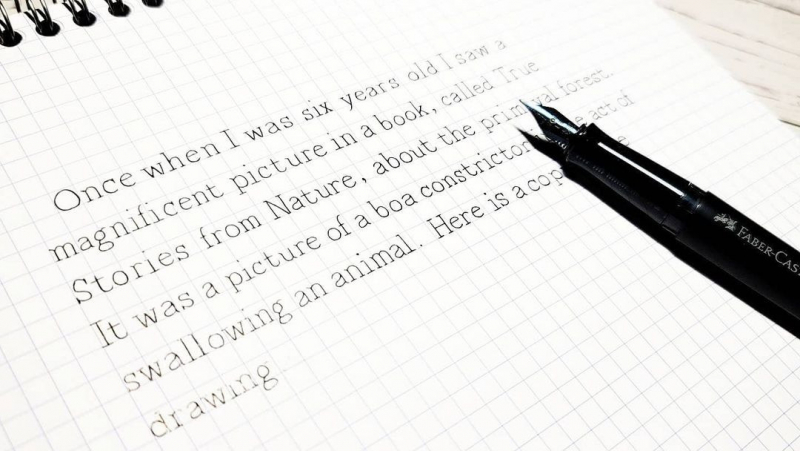 Once when I was six years old I saw a
magnificent picture in a book, called True
Stories from Nature, about the primeval forest.
It was a picture of a boa constrictor in the act of
swallowing an animal. Here is a copy
drawing
FABER-CAS